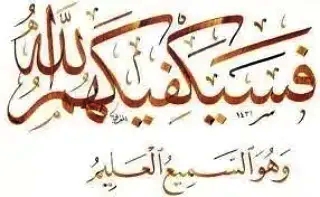 فَسَيَكْفِيكَهُمُ اللَّهُ
١٤٣١
وَهُوَ السَّمِيعُ الْعَلِيمُ